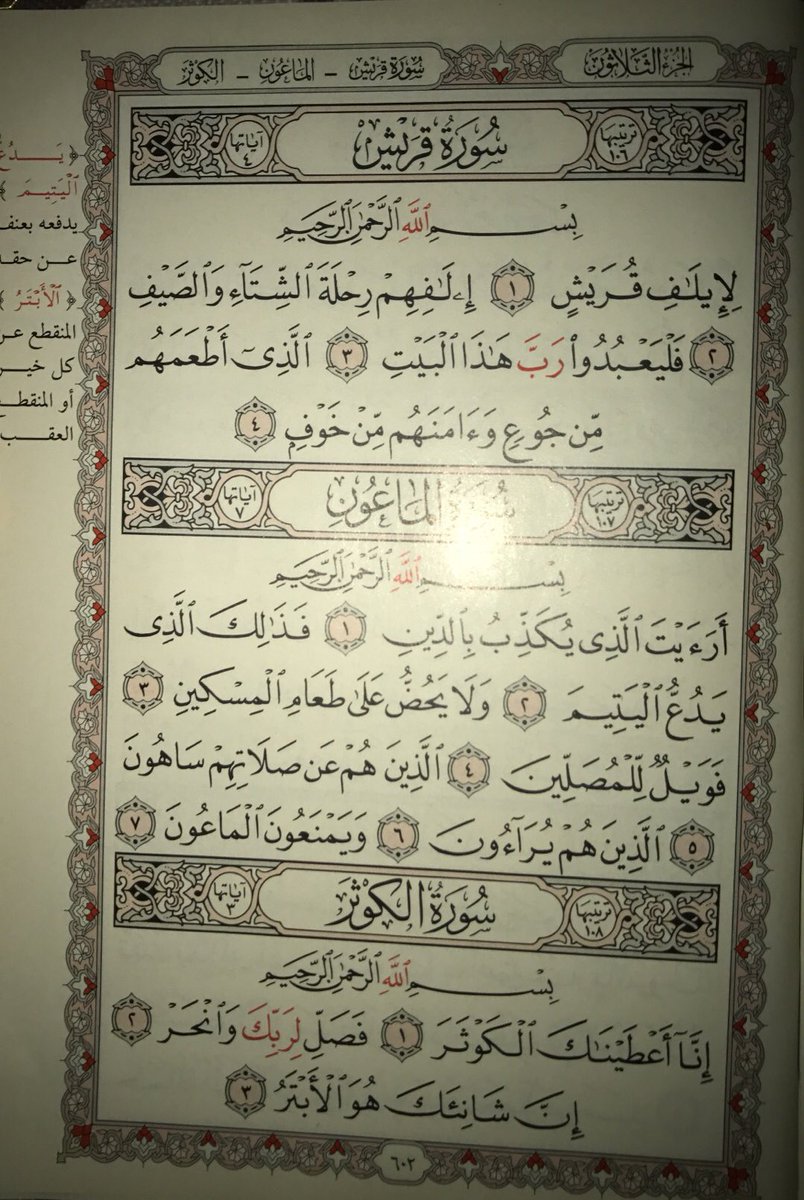 الجزء الثلاثون
سورة قريش - الماعون - الكوثر
ترتيبها ١٠٦ سورة قريش آياتها ٤
بسم الله الرحمن الرحيم
لِإِيلَٰفِ قُرَيْشٍ ١ إِۦلَٰفِهِمْ رِحْلَةَ ٱلشِّتَآءِ وَٱلصَّيْفِ
٢ فَلْيَعْبُدُوا۟ رَبَّ هَٰذَا ٱلْبَيْتِ ٣ ٱلَّذِىٓ أَطْعَمَهُم
مِّن جُوعٍ وَءَامَنَهُم مِّنْ خَوْفٍۭ ٤
ترتيبها ١٠٧ سورة الماعون آياتها ٧
بسم الله الرحمن الرحيم
أَرَءَيْتَ ٱلَّذِى يُكَذِّبُ بِٱلدِّينِ ١ فَذَٰلِكَ ٱلَّذِى
يَدُعُّ ٱلْيَتِيمَ ٢ وَلَا يَحُضُّ عَلَىٰ طَعَامِ ٱلْمِسْكِينِ ٣
فَوَيْلٌ لِّلْمُصَلِّينَ ٤ ٱلَّذِينَ هُمْ عَن صَلَاتِهِمْ سَاهُونَ
٥ ٱلَّذِينَ هُمْ يُرَآءُونَ ٦ وَيَمْنَعُونَ ٱلْمَاعُونَ ٧
ترتيبها ١٠٨ سورة الكوثر آياتها ٣
بسم الله الرحمن الرحيم
إِنَّآ أَعْطَيْنَٰكَ ٱلْكَوْثَرَ ١ فَصَلِّ لِرَبِّكَ وَٱنْحَرْ ٢
إِنَّ شَانِئَكَ هُوَ ٱلْأَبْتَرُ ٣
٦٠٢
ٱلْيَتِيمَ ﴾
يدفعه بعنف
عن حقه
﴿ ٱلْأَبْتَرُ ﴾
المنقطع عن
كل خير
أو المنقطع
العقب